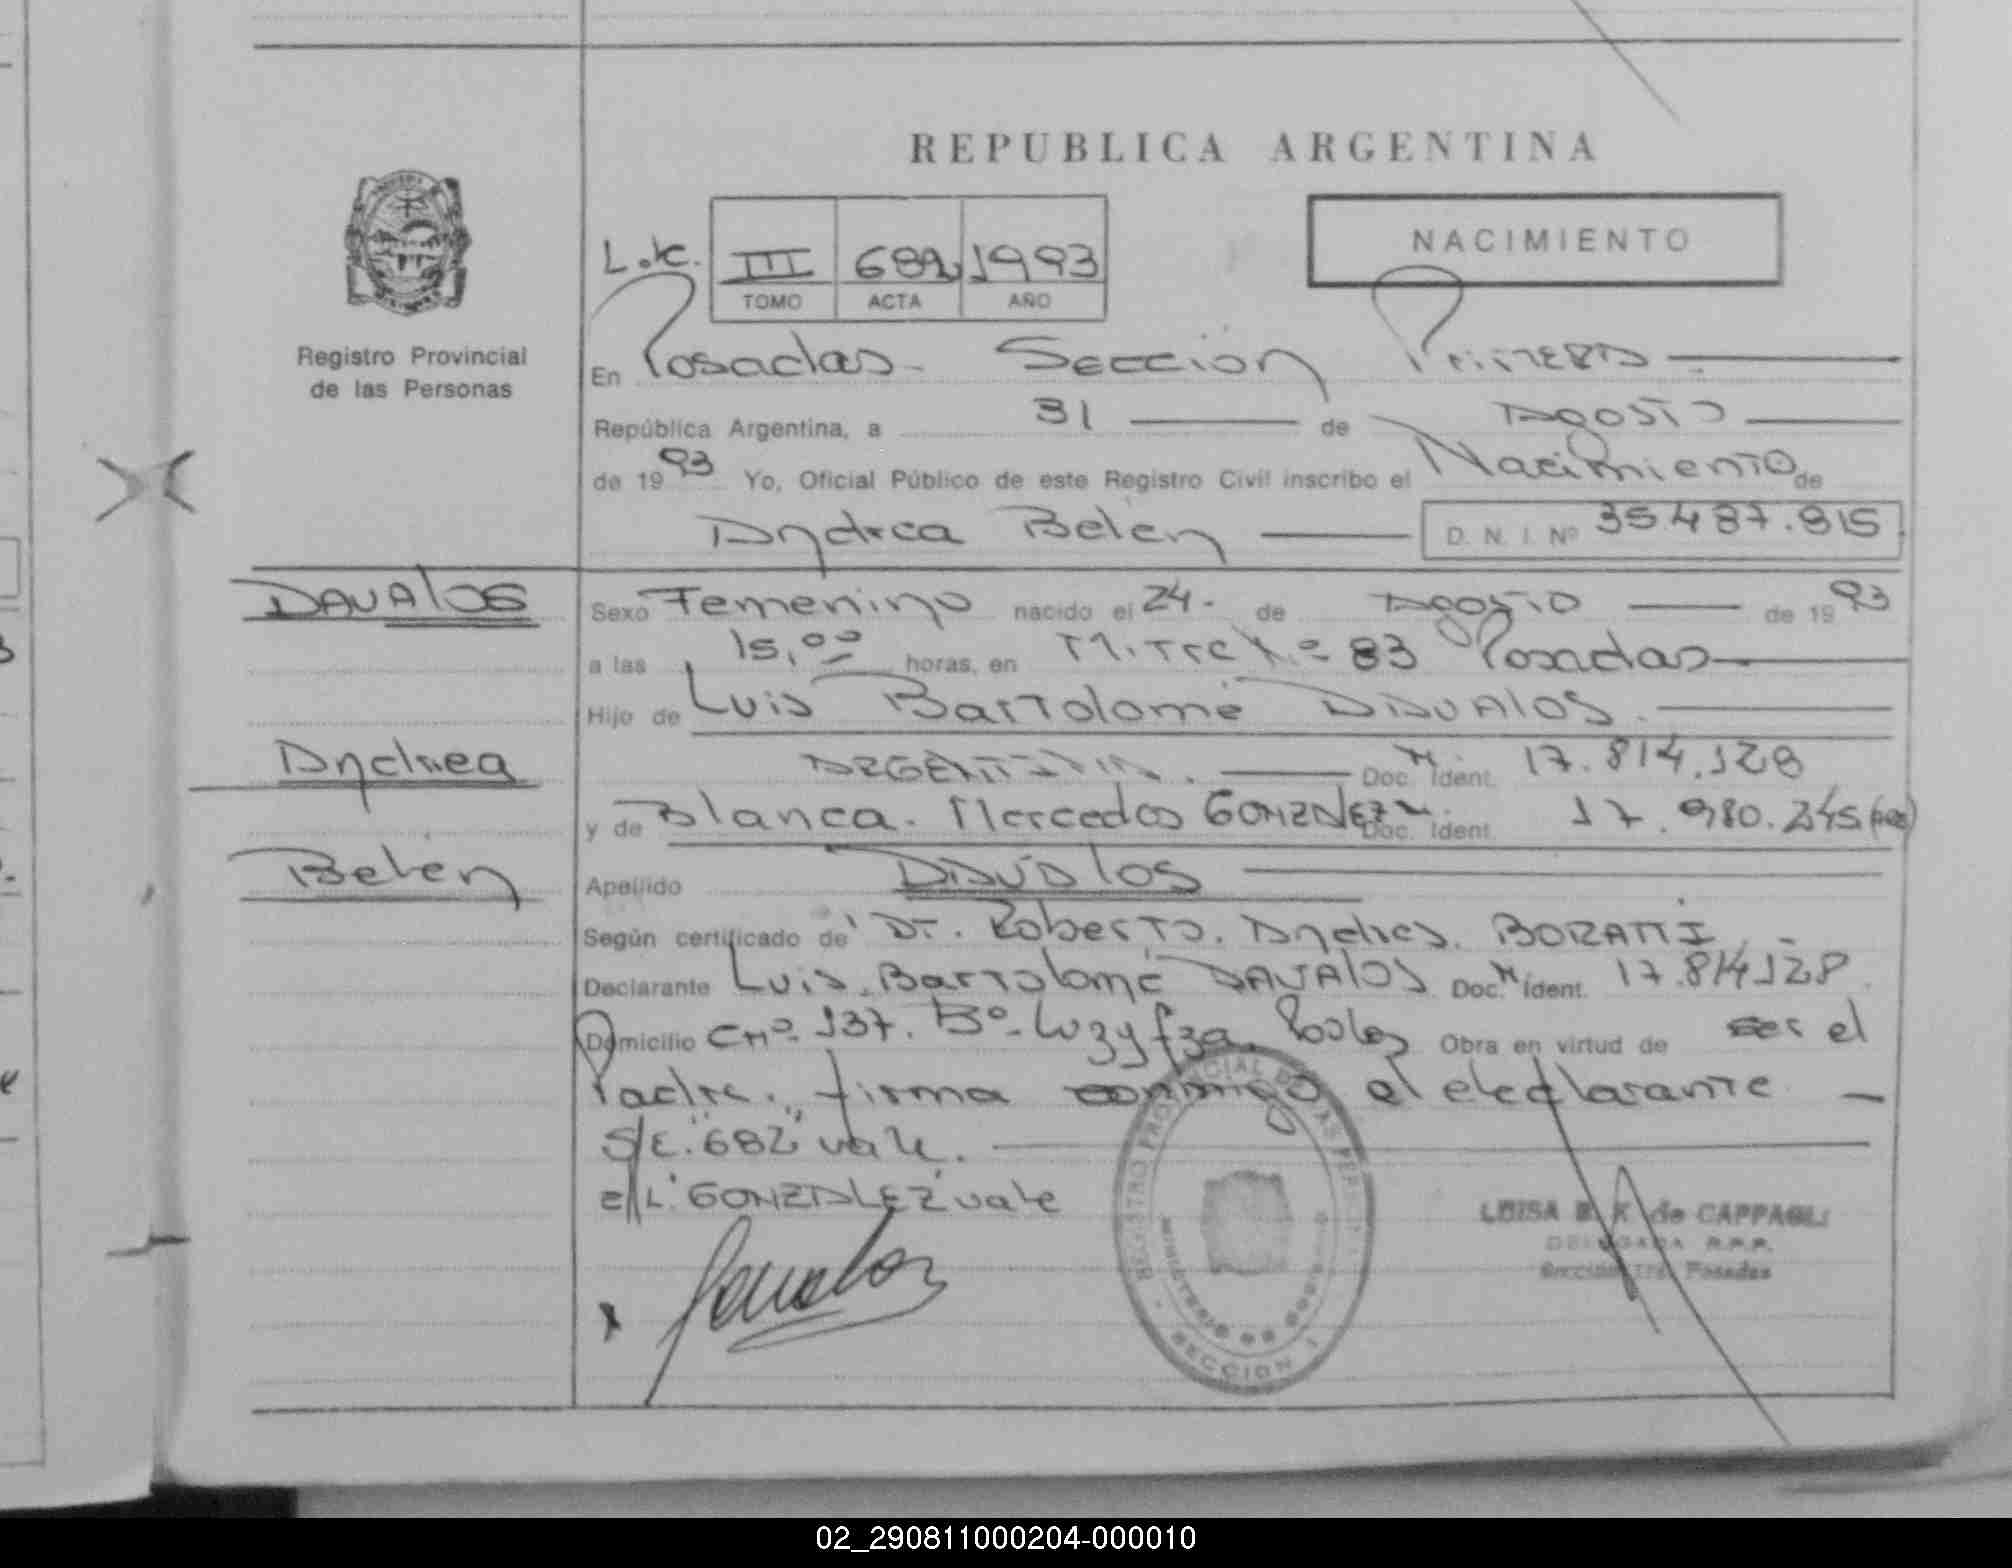 REPUBLICA ARGENTINA
NACIMIENTO
L.K. III 682 1993
TOMO ACTA AÑO
Registro Provincial
de las Personas
En Posadas - Sección Primera
República Argentina, a 31 de Agosto
de 1993 Yo, Oficial Público de este Registro Civil inscribo el Nacimiento de
Andrea Belén D. N. I. Nº 35.487.815
DAVALOS
Andrea
Belén
Sexo Femenino nacido el 24 - de Agosto de 1993
a las 15,00 horas, en Mitre Nº 83 Posadas
Hijo de Luis Bartolomé DAVALOS.
ARGENTINA. Doc. M Ident. 17.814.128
y de Blanca. Mercedes GONZALEZ Doc. Ident. 17.980.245
Apellido DAVALOS
Según certificado de Dr. Roberto. Andrés. BORATTI
Declarante Luis. Bartolomé DAVALOS Doc. M Ident. 17.814.128.
Domicilio 137. Bº- Luz y fza. Obra en virtud de ser el
Padre. firma conmigo el declarante
S/E. "682" vale.
E/L. "GONZALEZ" vale
Davalos
REGISTRO PROVINCIAL DE LAS PERSONAS
MINISTERIO DE GOBIERNO
SECCION 1
LUISA de CAPPAGLI
DELEGADA R.P.P.
Sección 1ra. Posadas
02_290811000204-000010